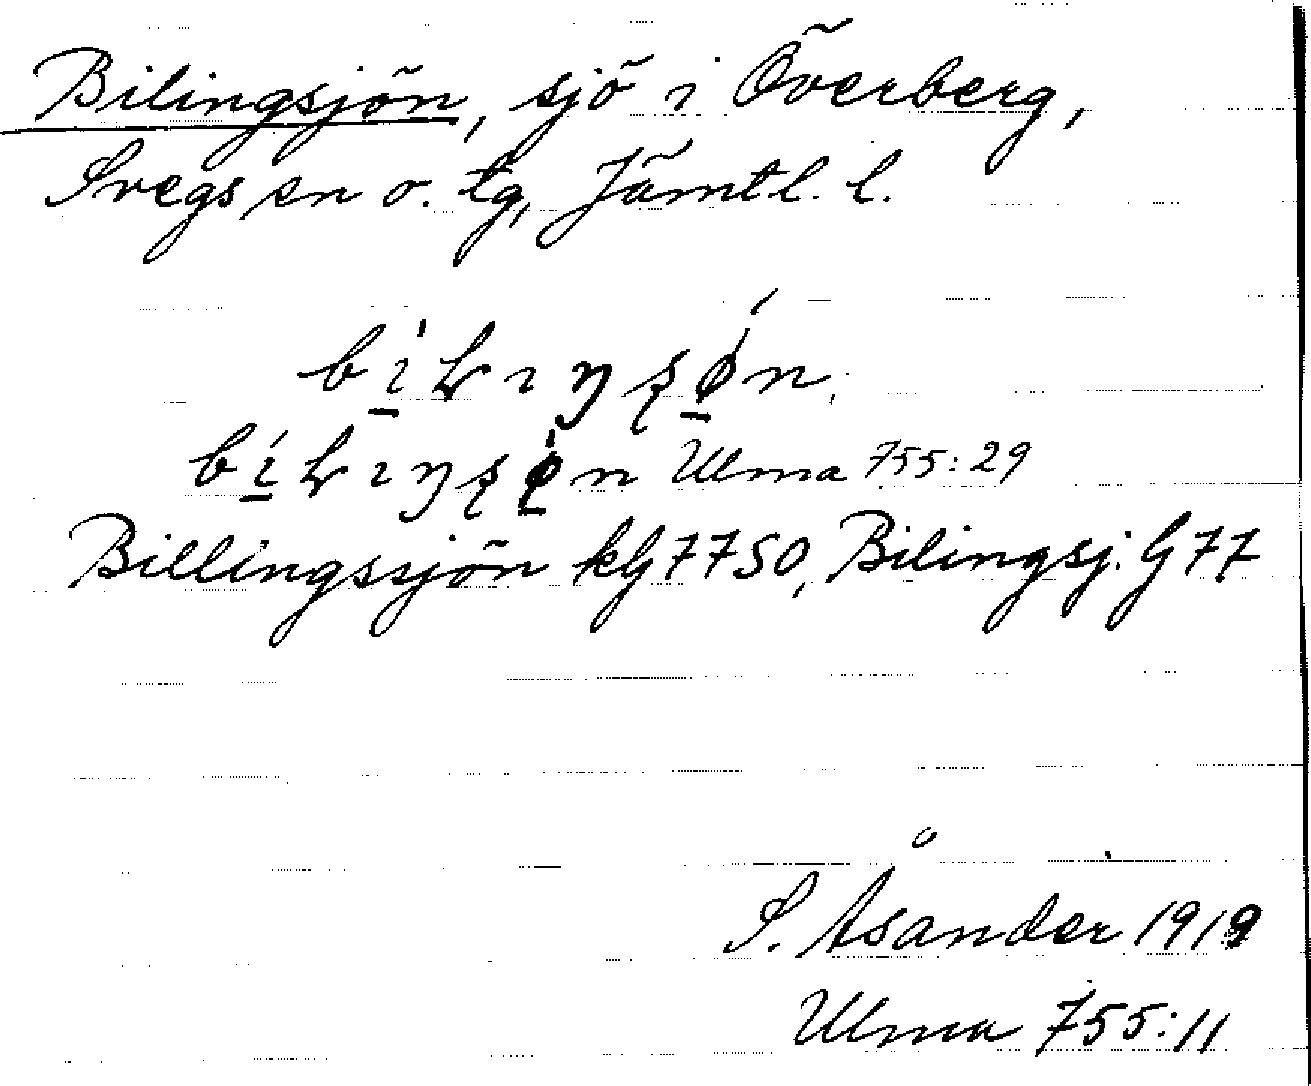 Bilingsjön, sjö i Överberg,
Svegs sn o. tg, Jämtl. l.
Ulma 755:29
Billingssjön kG7750, Bilingsj. G77
S. Åsander 1919
Ulma 755:11